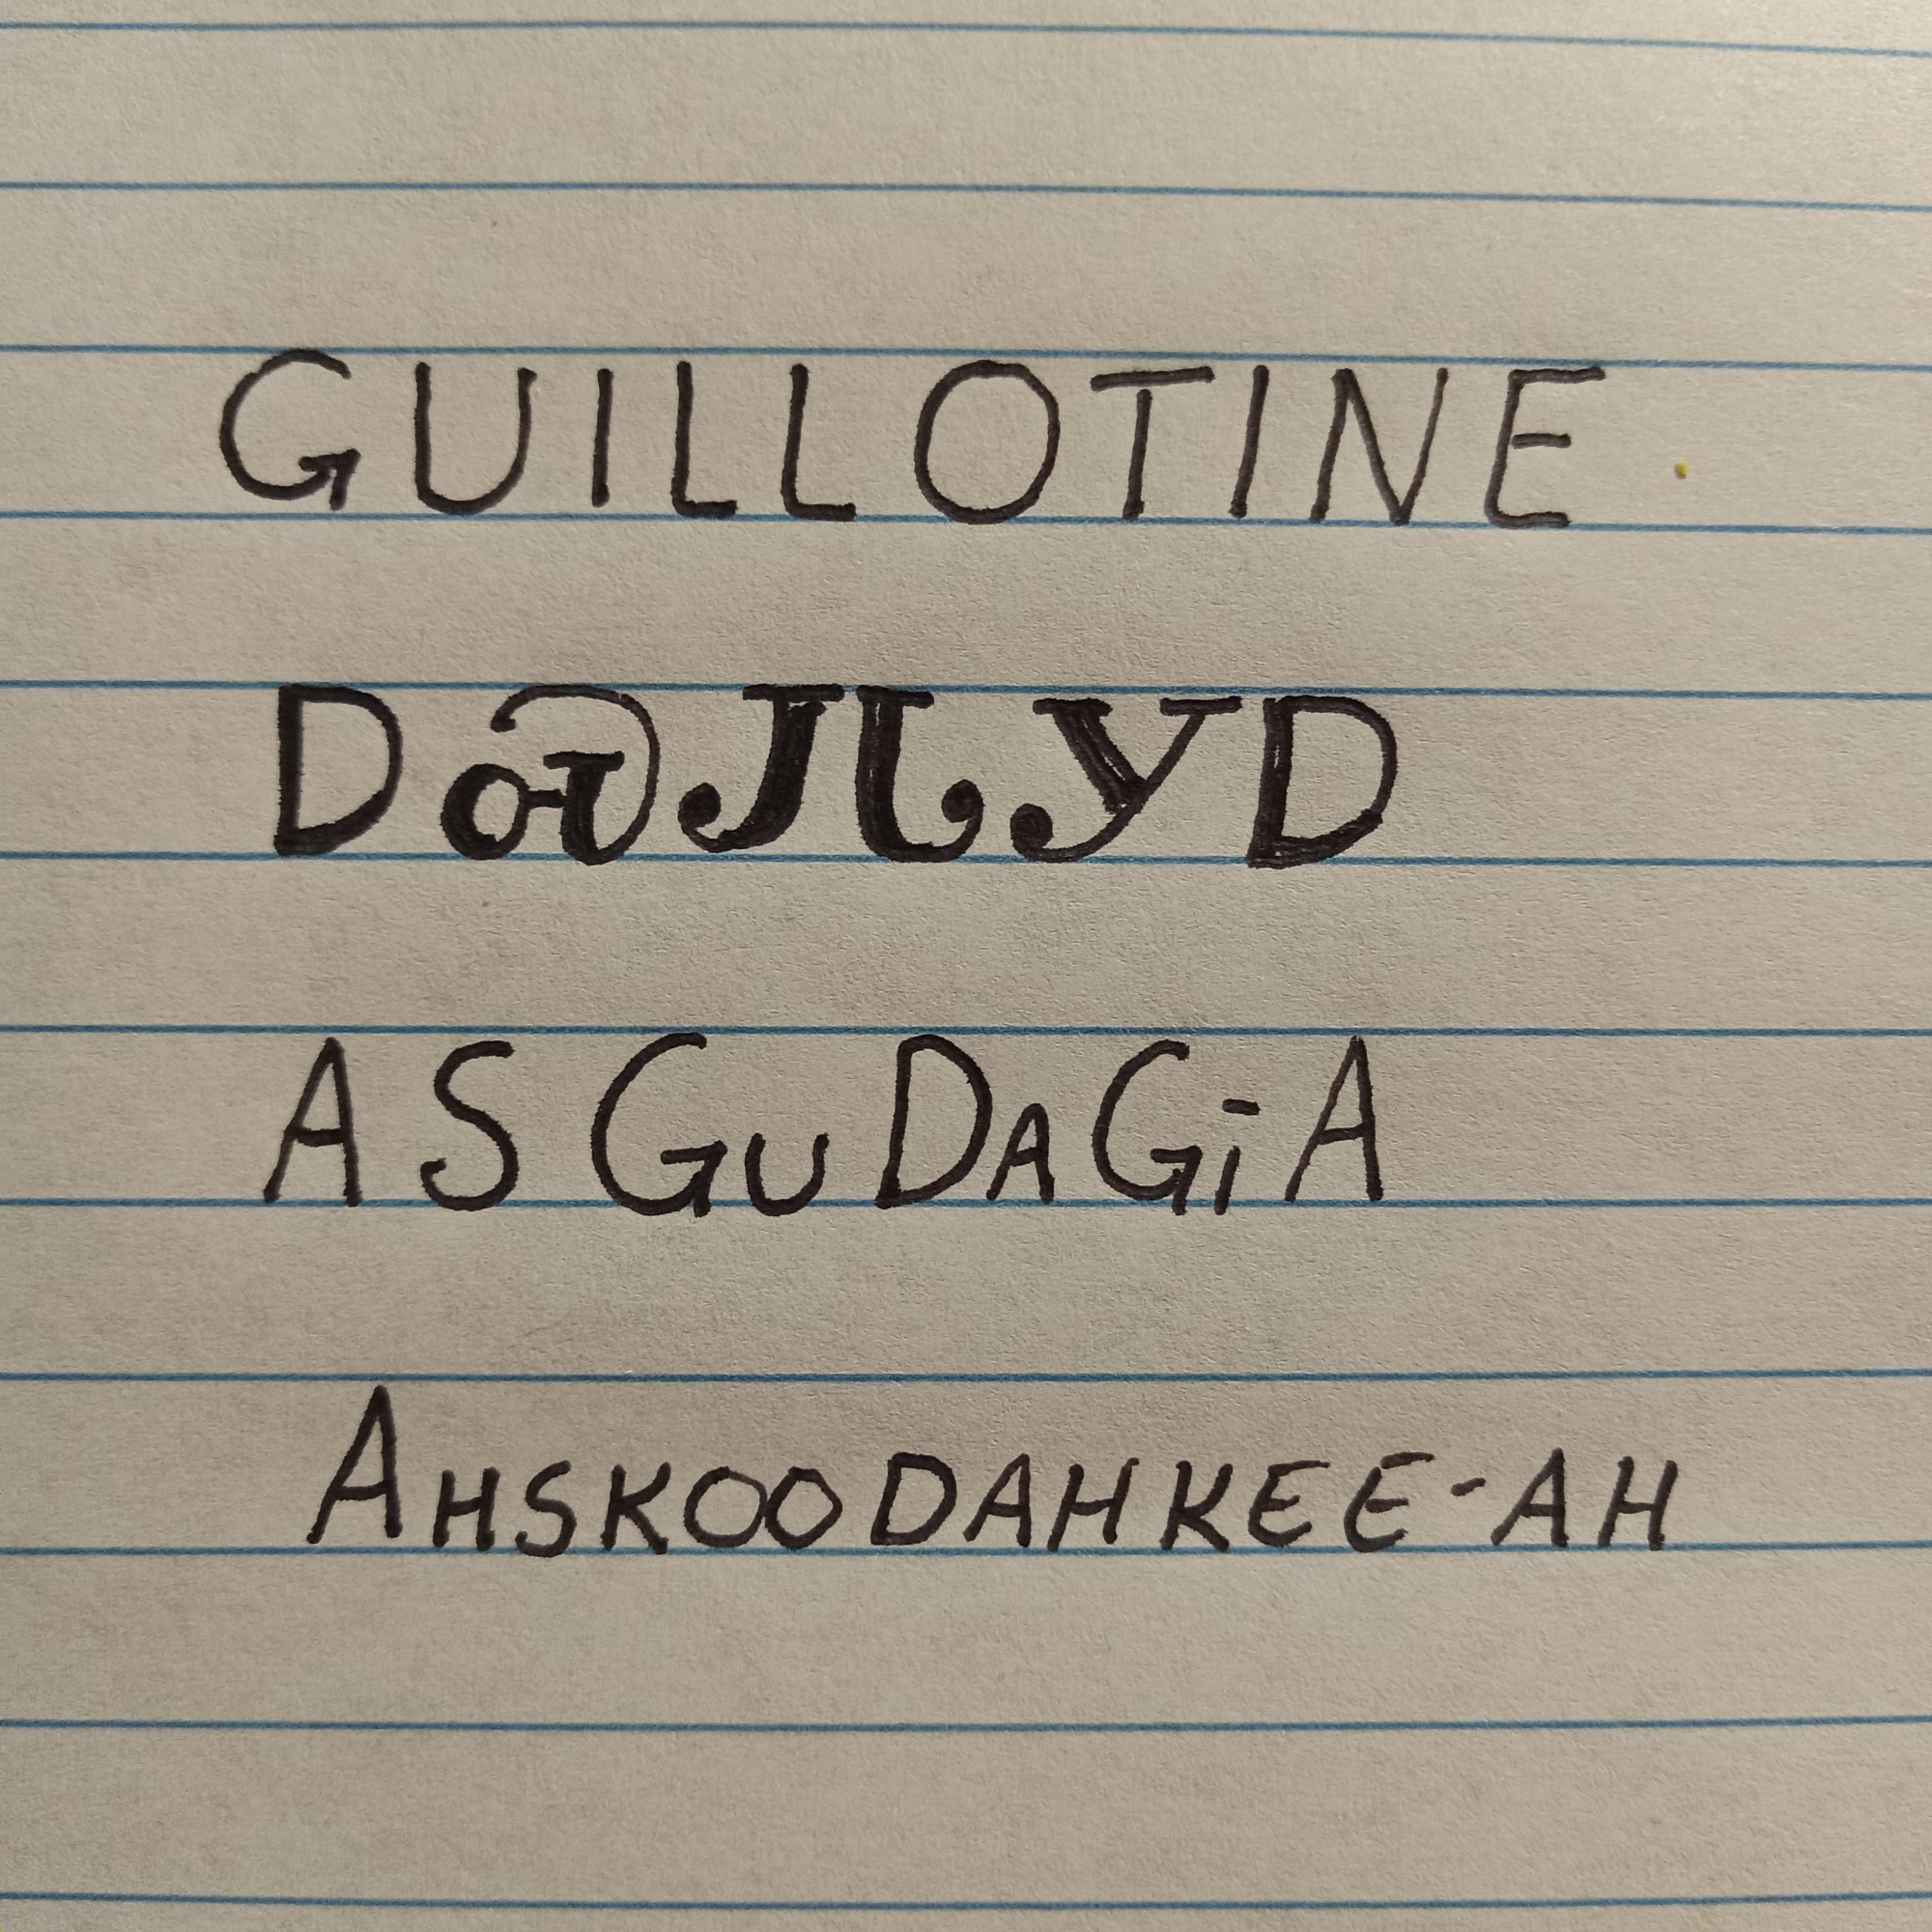 GUILLOTINE
ᎠᏍᎫᏓᎩᎠ
ASGUDAGiA
AHSKOODAHKEE-AH